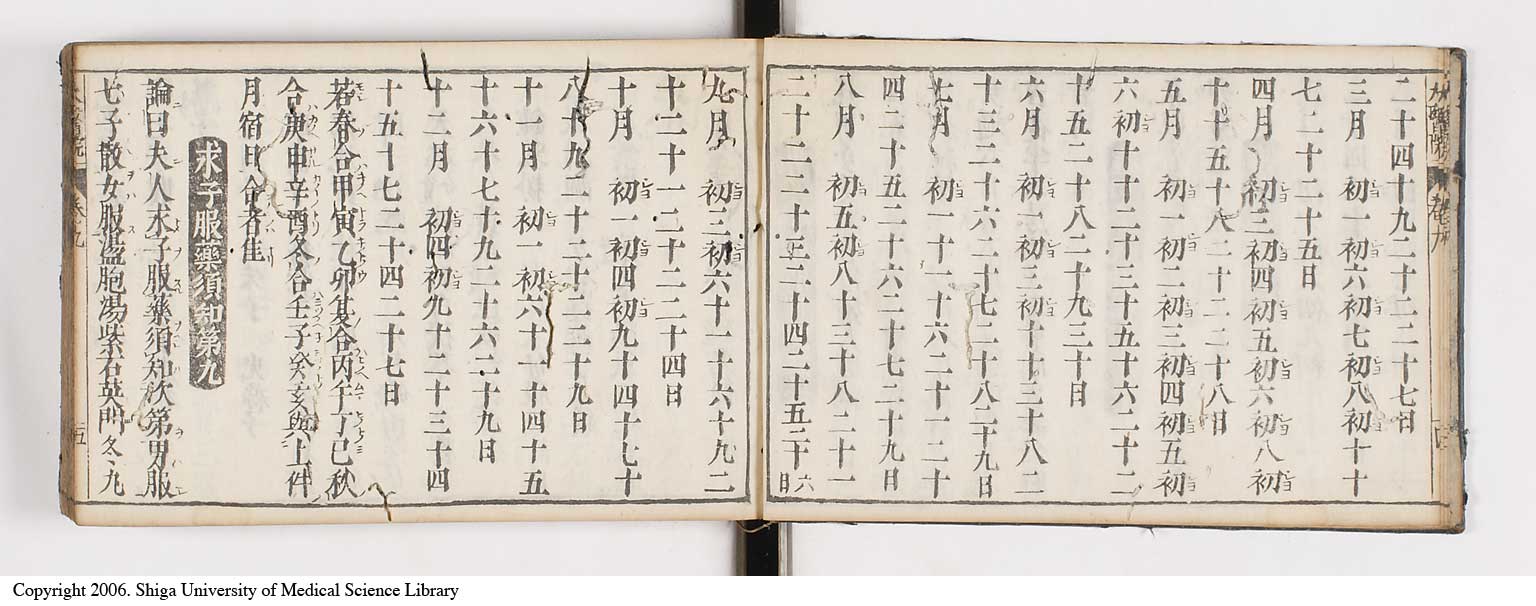 二十四十九二十二二十七日
三月 初一初六初七初八初十十
七二十二十五日
四月 初三初四初五初六初八初
十十五十八二十二二十八日
五月 初一初二初三初四初五初
六初十十二十三十五十六二十二
十五二十八二十九三十日
六月 初一初三初十十三十八二
十三二十六二十七二十八二十九日
七月 初一十一十六二十一二十
四二十五二十六二十七二十九日
八月 初五初八十三十八二十一
二十二二十三二十四二十五二十六日
九月 初三初六十一十六十九二
十二十一二十二二十四日
十月 初一初四初九十四十七十
八十九二十二二十三二十九日
十一月 初一初六十一十四十五
十六十七十九二十六二十九日
十二月 初四初九十二十三十四
十五十七二十四二十七日
若春合甲寅乙卯夏合丙午丁巳秋
合庚申辛酉冬合壬子癸亥與上件
月宿日合者佳
求子服藥須知第九
論曰夫人求子服藥須知次第男服
七子散女服盪胞湯紫石英門冬丸
Copyright 2006. Shiga University of Medical Science Library